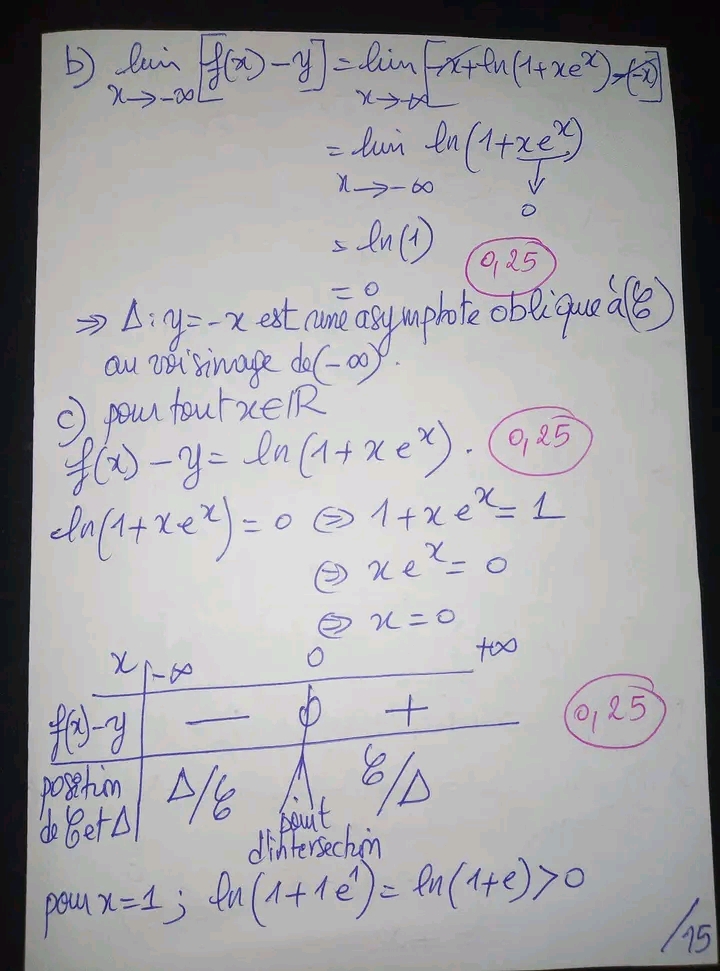 b) lim [f(x) – y] = lim [-x + ln(1+xeˣ) - (-x)]
x→-∞ x→-∞
= lim ln(1+xeˣ)
x→-∞ ↓
0
= ln(1)
0,25
= 0
⇒ Δ: y = -x est une asymptote oblique à (C)
au voisinage de (-∞).
c) pour tout x∈ℝ
f(x) – y = ln(1+xeˣ). 0,25
ln(1+xeˣ) = 0 ⇔ 1+xeˣ = 1
⇔ xeˣ = 0
⇔ x = 0
x -∞ 0 +∞
f(x)-y — 0 + 0,25
position Δ/C C/Δ
de C et Δ point
d'intersection
pour x=1 ; ln(1+1e¹) = ln(1+e) > 0
/15